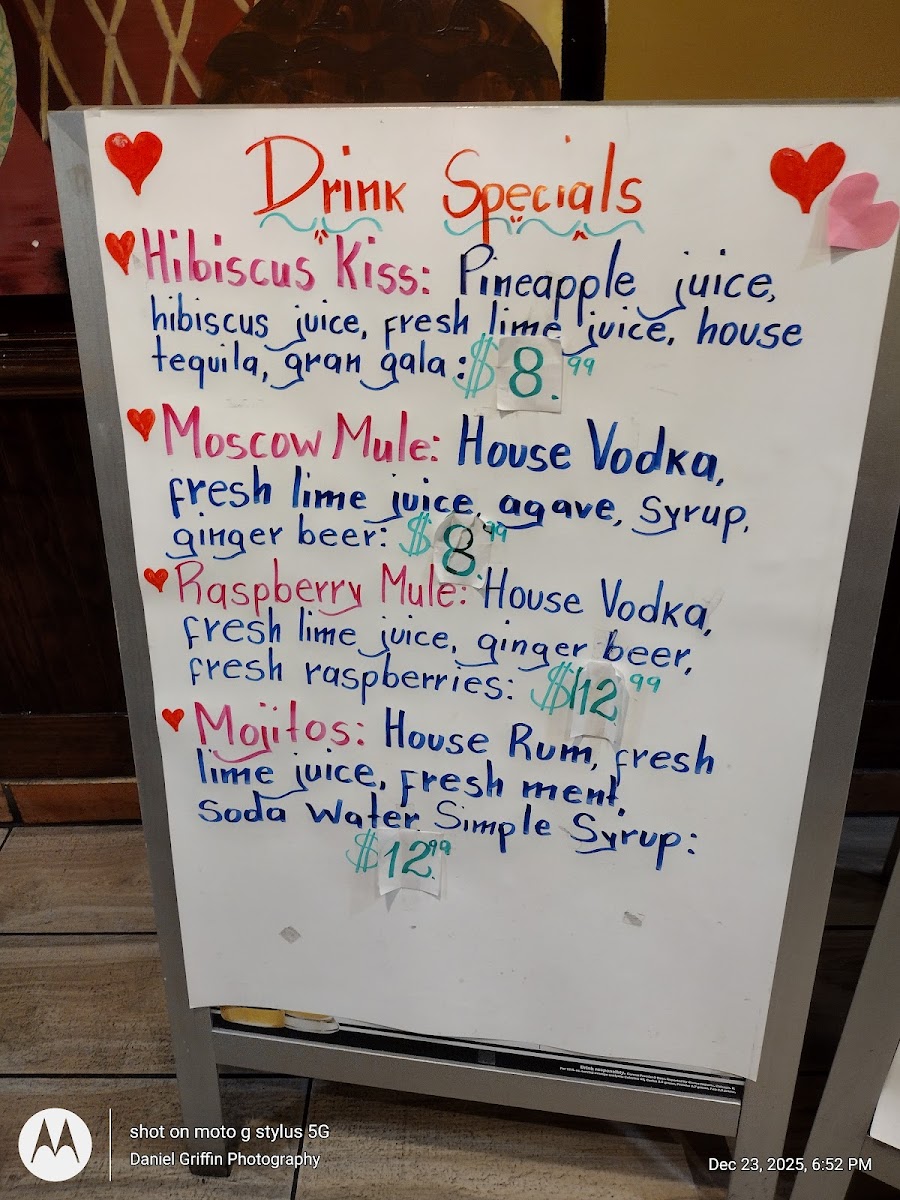 Drink Specials
Hibiscus Kiss: Pineapple juice,
hibiscus juice, fresh lime juice, house
tequila, gran gala: $8.99
Moscow Mule: House Vodka,
fresh lime juice, agave, syrup,
ginger beer: $8.99
Raspberry Mule: House Vodka,
fresh lime juice, ginger beer,
fresh raspberries: $12.99
Mojitos: House Rum, fresh
lime juice, fresh ment,
Soda Water Simple Syrup:
$12.99
Drink responsibly.
shot on moto g stylus 5G
Daniel Griffin Photography
Dec 23, 2025, 6:52 PM